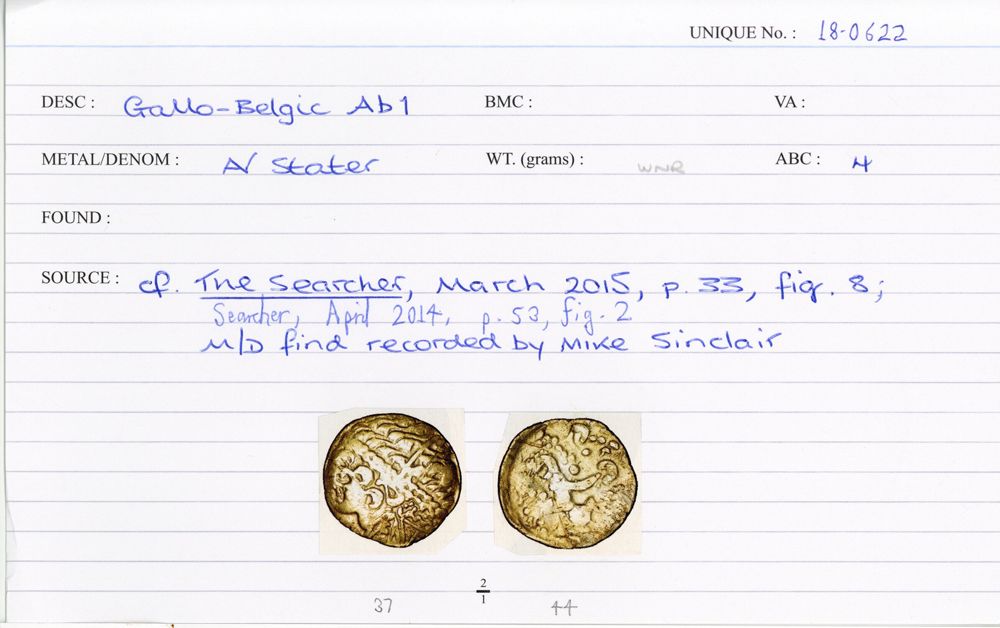 UNIQUE No. : 18-0622
DESC : Gallo-Belgic Ab1 BMC : VA :
METAL/DENOM : A/ Stater WT. (grams) : WNR ABC : 4
FOUND :
SOURCE : cf. The Searcher, March 2015, p. 33, fig. 8;
Searcher, April 2014, p. 53, fig. 2
M/D find recorded by Mike Sinclair
2
1
37 44